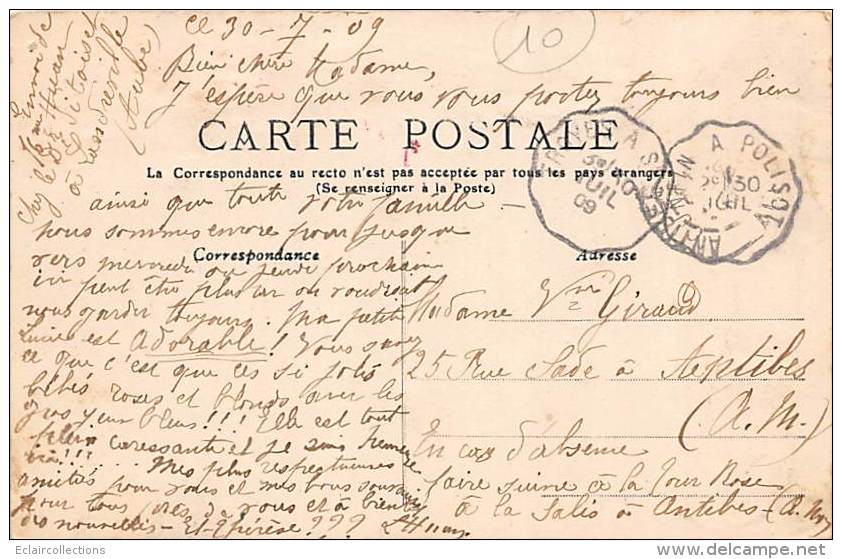 ce 30-7-09
10
Bien chère Madame,
J'espère que vous vous portez toujours bien
CARTE POSTALE
La Correspondance au recto n'est pas acceptée par tous les pays étrangers
(Se renseigner à la Poste)
ainsi que toute votre famille -
nous sommes encore pour jusque
Correspondance
vers mercredi ou jeudi prochain
ici peut être plus car on voudrait
nous garder toujours. Ma petite
est adorable! Vous savez
ce que c'est que ces si jolis
bébés roses et blonds avec les
gros yeux bleus!!! Elle est tout
plein caressante et je suis heureuse
Mes plus respectueuses
amitiés pour vous et mes bons souvenirs
pour tous près de vous et à bientôt
des nouvelles - Et Thérèse???
Envoi de
Mme Huan
chez le Dr
à Landreville
(Aube)
Adresse
Madame Vve Giraud
25 Rue Sade à Antibes
(A. M.)
En cas d'absence
faire suivre à la Tour Rose
à la Salis à Antibes - (A. M.)
A S
30
JUIL
09
A POLISY
30
JUIL
©Eclaircollections
delcampe.net